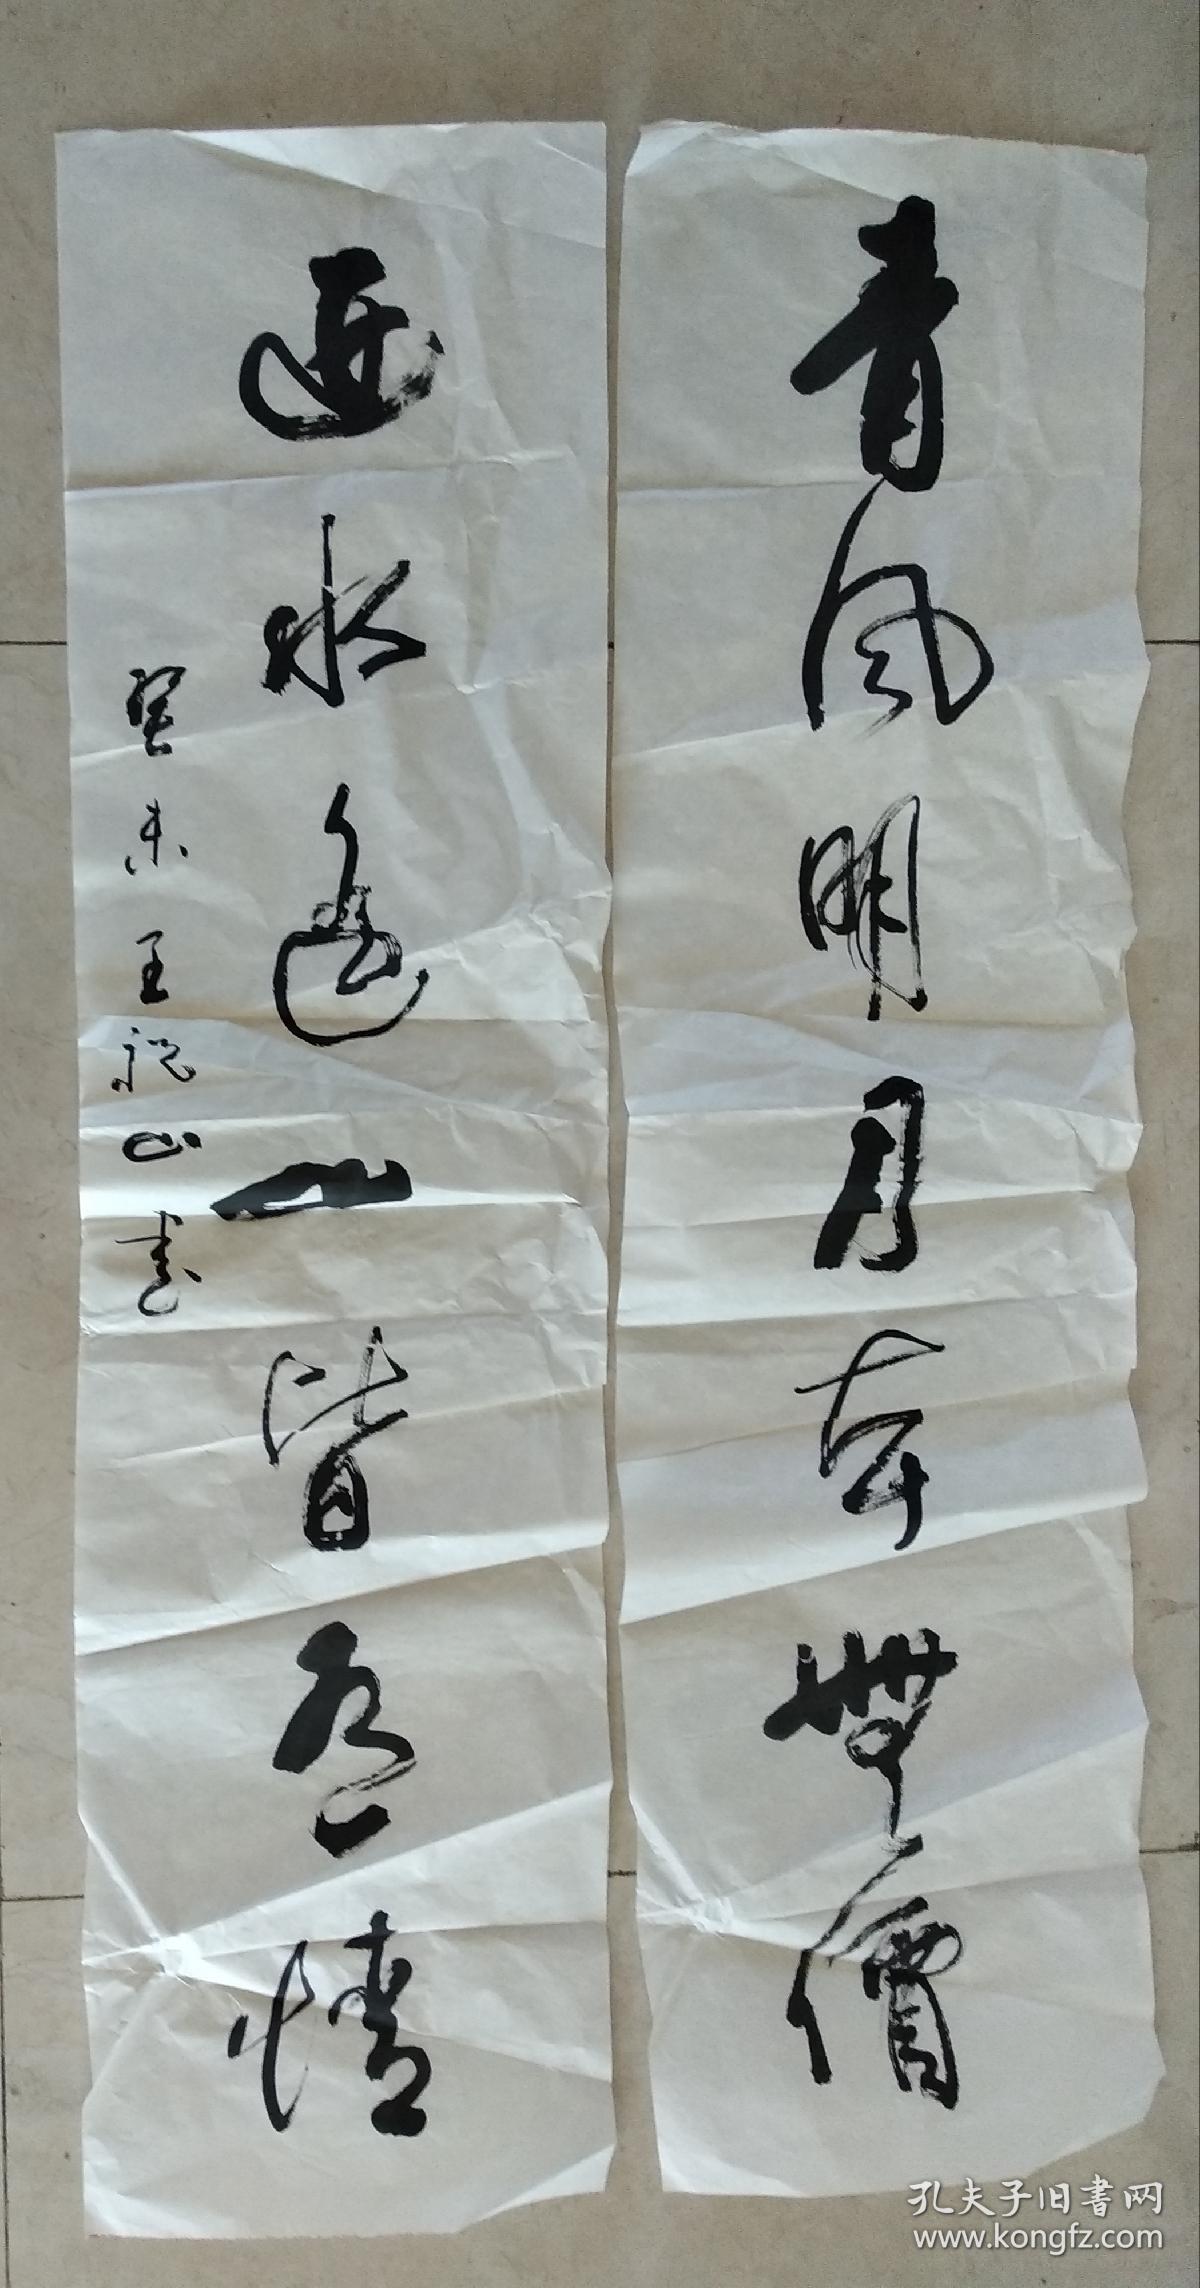 青风明月本無價
近水遠山皆有情
癸未王福山書
孔夫子旧書网
www.kongfz.com